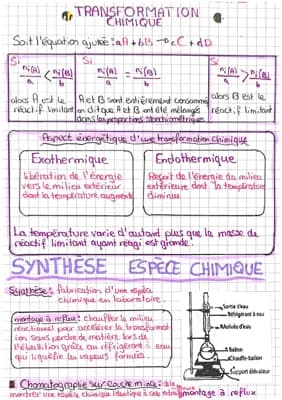 TRANSFORMATION
CHIMIQUE
Soit l'équation ajustée : aA + bB → cC + dD
Si
ni(A)/a < ni(B)/b
alors A est le
réactif limitant
Si
ni(A)/a = ni(B)/b
A et B sont entièrement consommés
on dit que A et B ont été mélangés
dans les proportions stœchiométriques
Si
ni(A)/a > ni(B)/b
alors B est le
réactif limitant
Aspect énergétique d'une transformation chimique
Exothermique
libération de l'énergie
vers le milieu extérieur
dont la température augmente
Endothermique
Reçoit de l'énergie du milieu
extérieure dont la température
diminue
La température varie d'autant plus que la masse de
réactif limitant ayant réagi est grande.
SYNTHÈSE ESPÈCE CHIMIQUE
Synthèse : fabrication d'une espèce
chimique en laboratoire.
montage à reflux : chauffer le milieu
réactionnel pour accélérer la transformation
sans perte de matière lors de
l'ébullition grâce au réfrigérant à eau
qui liquéfie les vapeurs formées.
Sortie d'eau
Réfrigérant à eau
Arrivée d'eau
Ballon
Chauffe-ballon
Support élévateur
montage à reflux
Chromatographie sur couche mince :
montrer une espèce chimique identique à